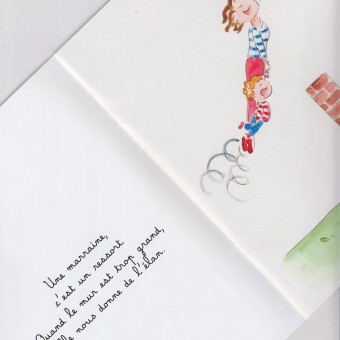 Une marraine,
c'est un ressort
Quand le mur est trop grand,
nous donne de l'élan.